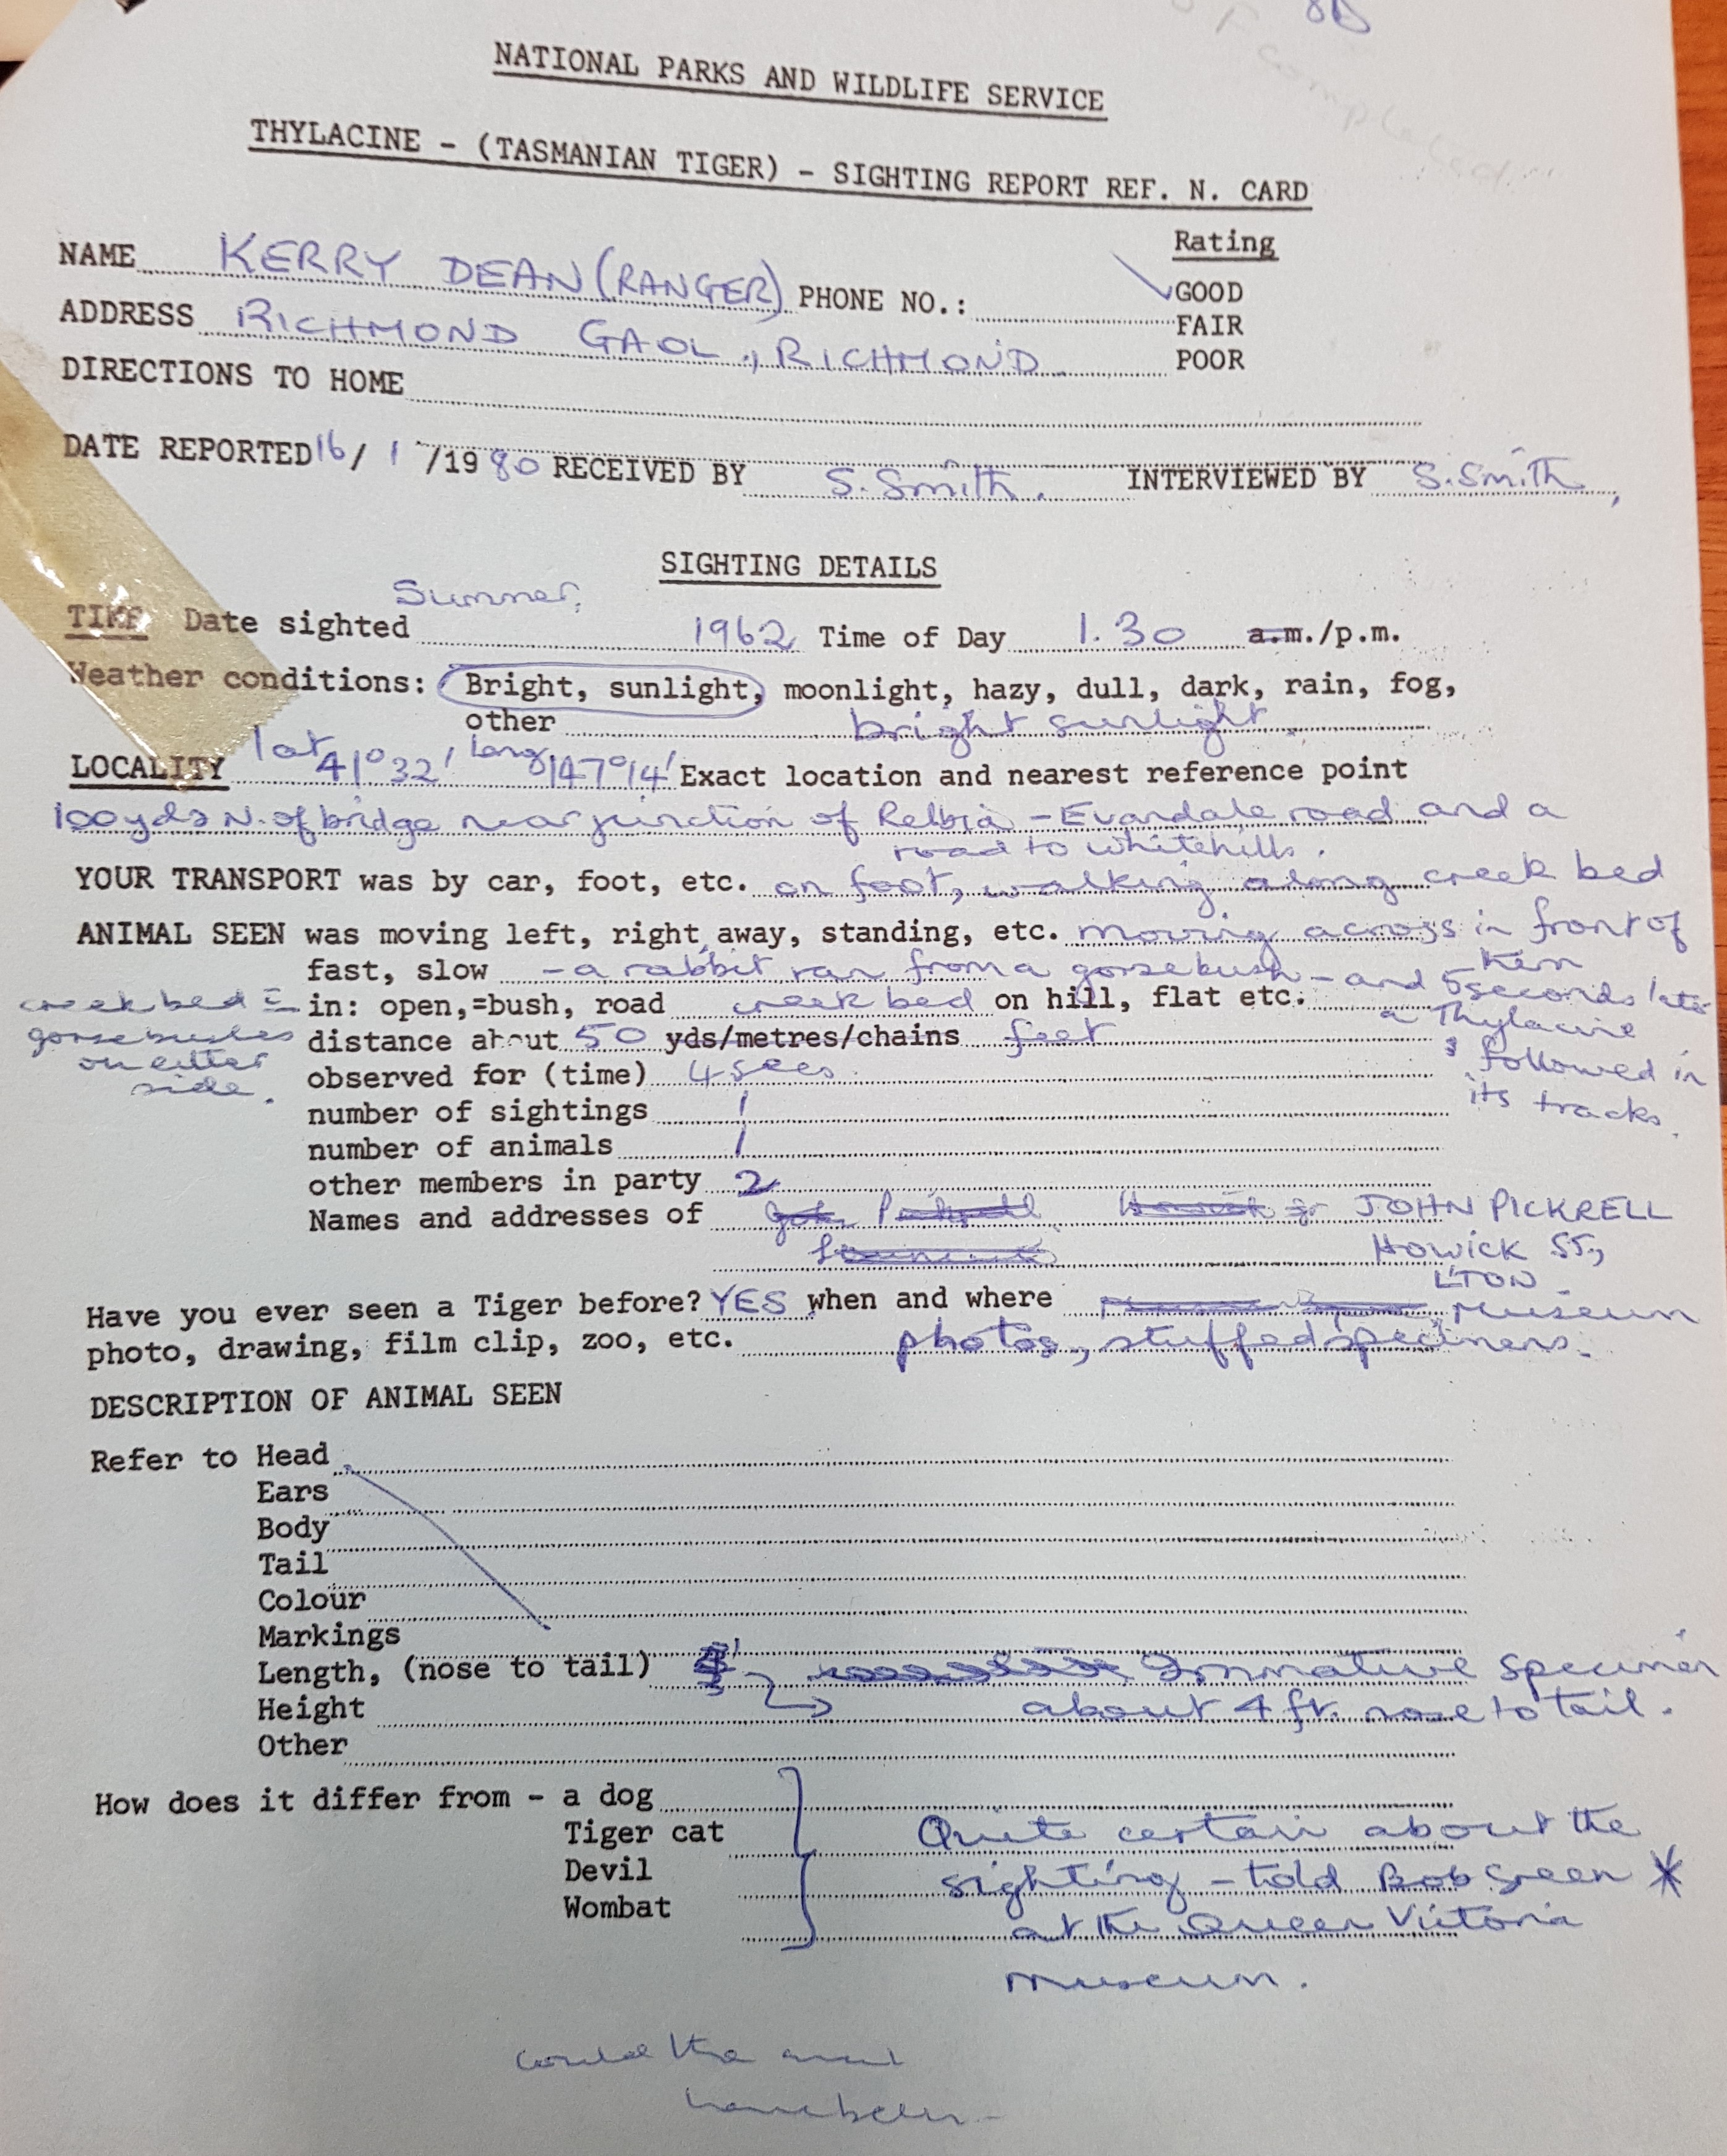 8D
NATIONAL PARKS AND WILDLIFE SERVICE
THYLACINE - (TASMANIAN TIGER) - SIGHTING REPORT REF. N. CARD
Rating
NAME KERRY DEAN (RANGER) PHONE NO.: GOOD
ADDRESS RICHMOND GAOL, RICHMOND FAIR
POOR
DIRECTIONS TO HOME
DATE REPORTED 16/ 1 /19 80 RECEIVED BY S. Smith. INTERVIEWED BY S. Smith
SIGHTING DETAILS
TIME Date sighted Summer, 1962 Time of Day 1.30 a.m./p.m.
Weather conditions: Bright, sunlight, moonlight, hazy, dull, dark, rain, fog,
other bright sunlight
LOCALITY lat 41°32' Long 147°14' Exact location and nearest reference point
100yds N. of bridge near junction of Relbia - Evandale road and a
road to Whitehills.
YOUR TRANSPORT was by car, foot, etc. on foot, walking along creek bed
ANIMAL SEEN was moving left, right, away, standing, etc. moving across in front of
them
fast, slow - a rabbit ran from a gorsebush - and 5 seconds later
in: open,=bush, road creek bed on hill, flat etc. a Thylacine
creek bed =
gorsebushes
on either
side.
distance about 50 yds/metres/chains feet
followed in
its tracks.
observed for (time) 4 secs.
number of sightings 1
number of animals 1
other members in party 2
Names and addresses of John Pickrell JOHN PICKRELL
HOWICK ST,
L'TON
Have you ever seen a Tiger before? YES when and where Museum
photo, drawing, film clip, zoo, etc. photos, stuffed specimens.
DESCRIPTION OF ANIMAL SEEN
Refer to Head
Ears
Body
Tail
Colour
Markings
Length, (nose to tail) Immature specimen
Height about 4 ft. nose to tail.
Other
How does it differ from - a dog
Tiger cat Quite certain about the
Devil sighting - told Bob Green *
Wombat at the Queen Victoria
museum.
could the
have been -